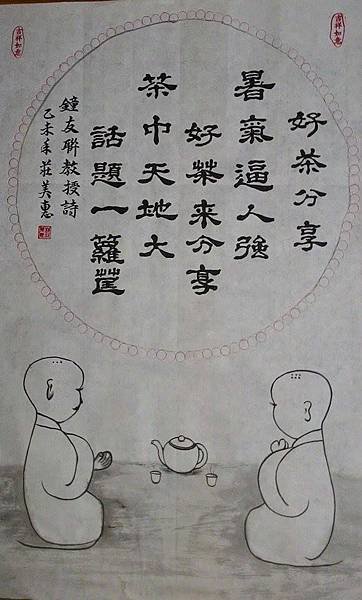 好茶分享
暑氣逼人強
好茶来分享
茶中天地大
話題一籮筐
鐘友聯教授詩
乙未年莊美惠
吉祥如意
吉祥如意